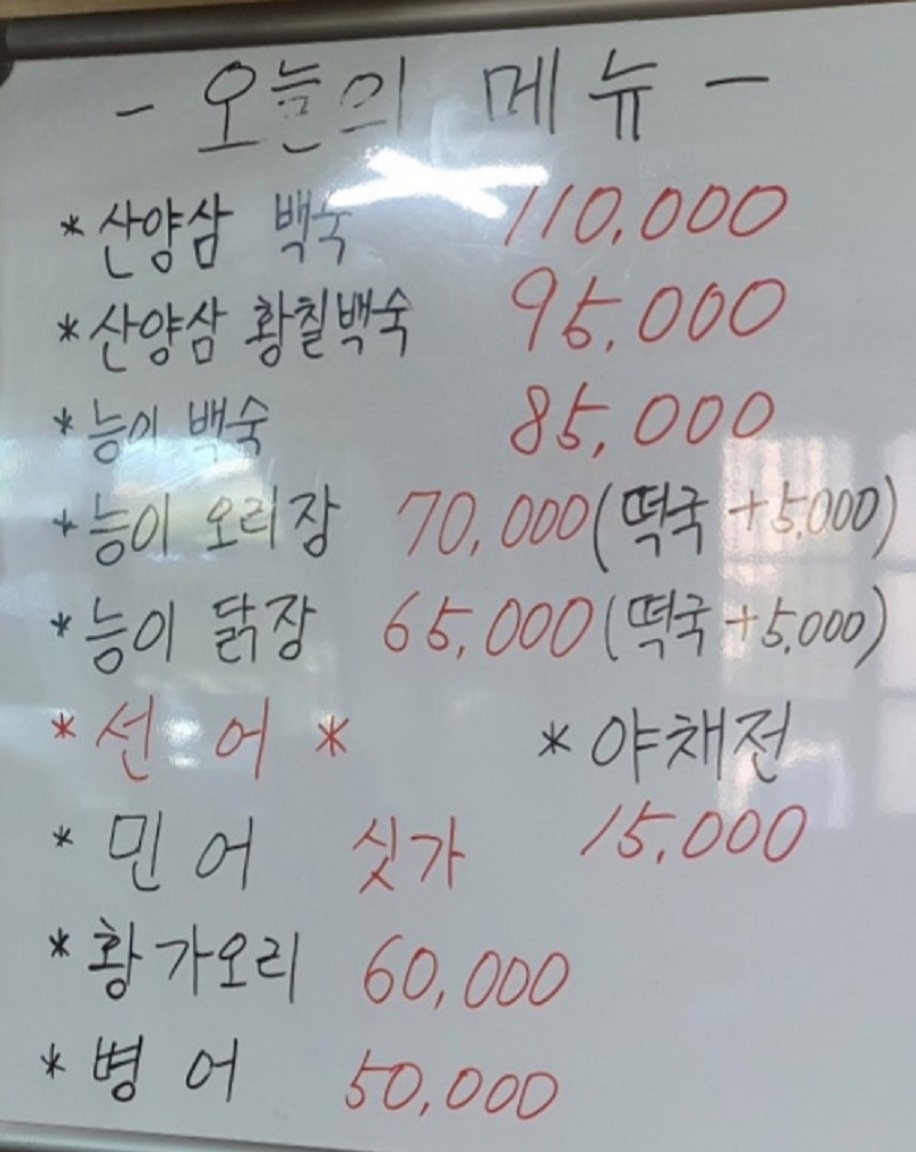 - 오늘의 메뉴 -
* 산양삼 백숙 110,000
* 산양삼 황칠백숙 95,000
* 능이 백숙 85,000
* 능이 오리장 70,000 (떡국 +5,000)
* 능이 닭장 65,000 (떡국 +5,000)
* 선어 * * 야채전
* 민어 싯가 15,000
* 황가오리 60,000
* 병어 50,000